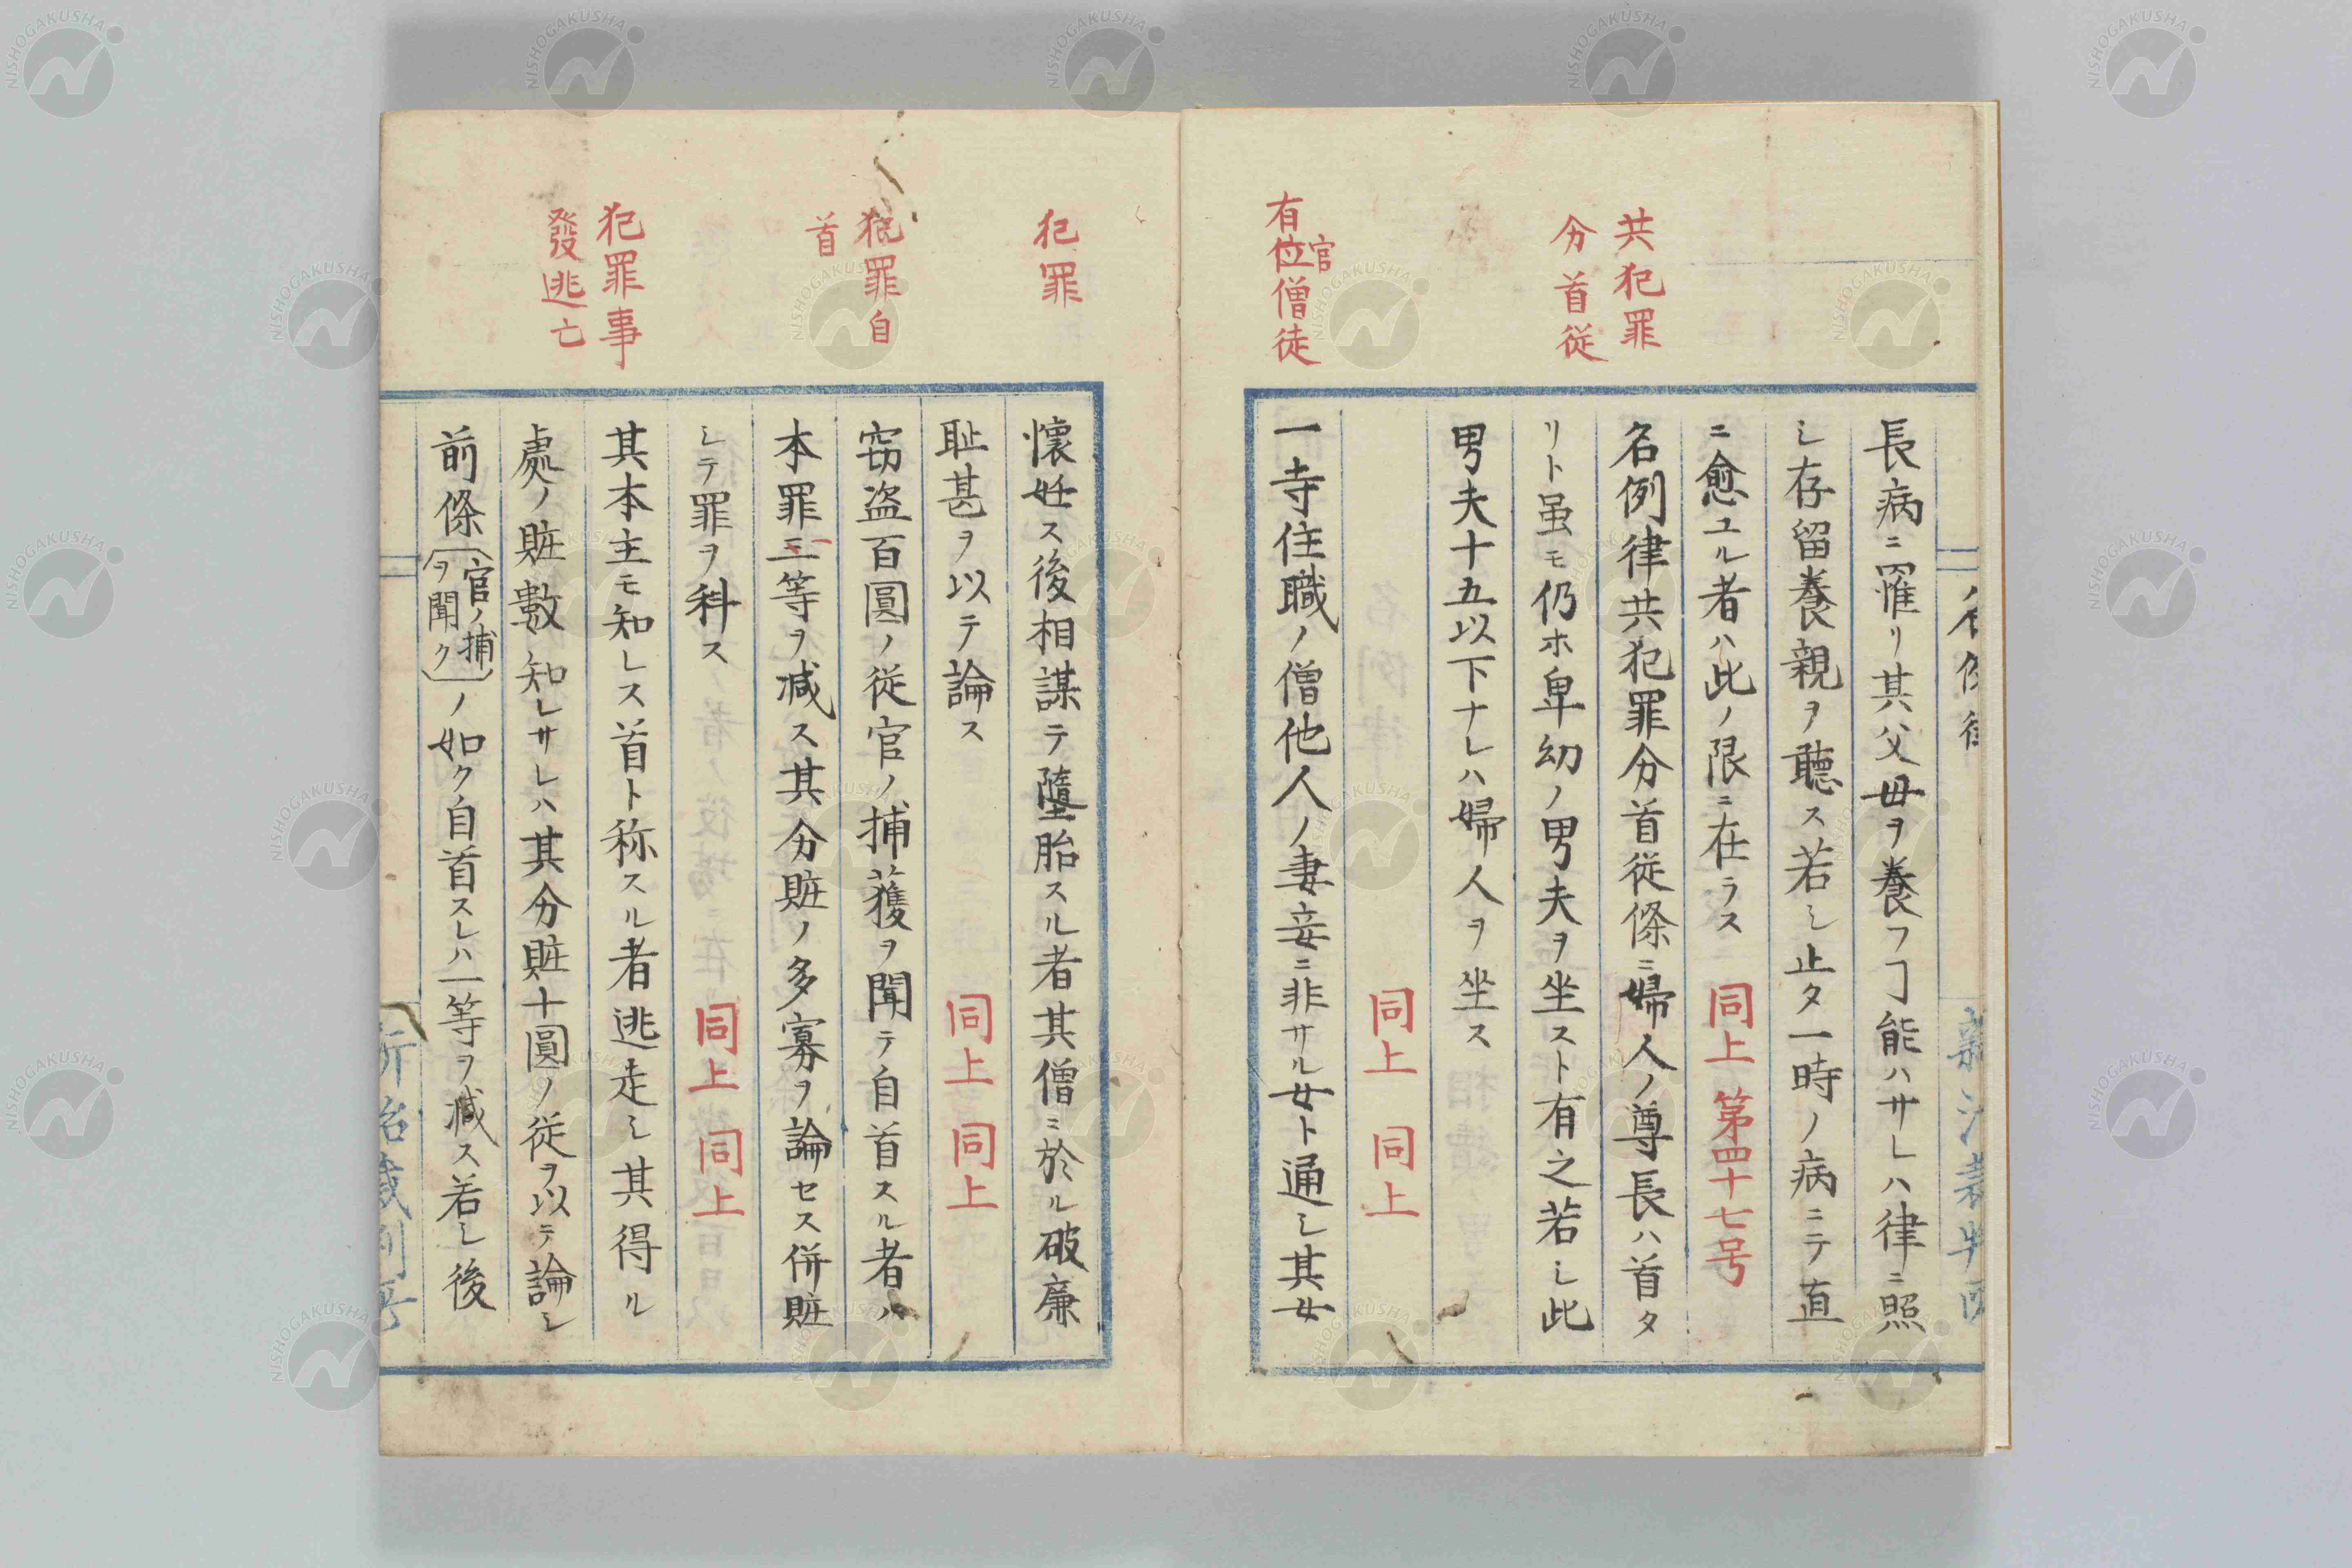 共犯罪
分首従
有位官僧徒
長病ニ罹リ其父母ヲ養フヿ能ハサレハ律ニ照
シ存留養親ヲ聴ス若シ止タ一時ノ病ニテ直
ニ愈ユル者ハ此ノ限ニ在ラス 同上 第四十七号
名例律共犯罪分首従條ニ婦人ノ尊長ハ首タ
リト虽モ仍ホ卑幼ノ男夫ヲ坐スト有之若シ此
男夫十五以下ナレハ婦人ヲ坐ス
同上 同上
一寺住職ノ僧他人ノ妻妾ニ非サル女ト通シ其女
犯罪
犯罪自
首
犯罪事
發逃亡
懐妊ス後相謀テ墮胎スル者其僧ニ於ル破廉
耻甚ヲ以テ論ス 同上 同上
窃盗百圓ノ従官ノ捕獲ヲ聞テ自首スル者ハ
本罪二等ヲ减ス其分賍ノ多寡ヲ論セス併賍
シテ罪ヲ科ス 同上 同上
其本主モ知レス首ト称スル者逃走シ其得ル
處ノ賍數知レサレハ其分賍十圓ノ従ヲ以テ論シ
前條（官ノ捕ヲ聞ク）ノ如ク自首スレハ一等ヲ减ス若シ後
NISHOGAKUSHA